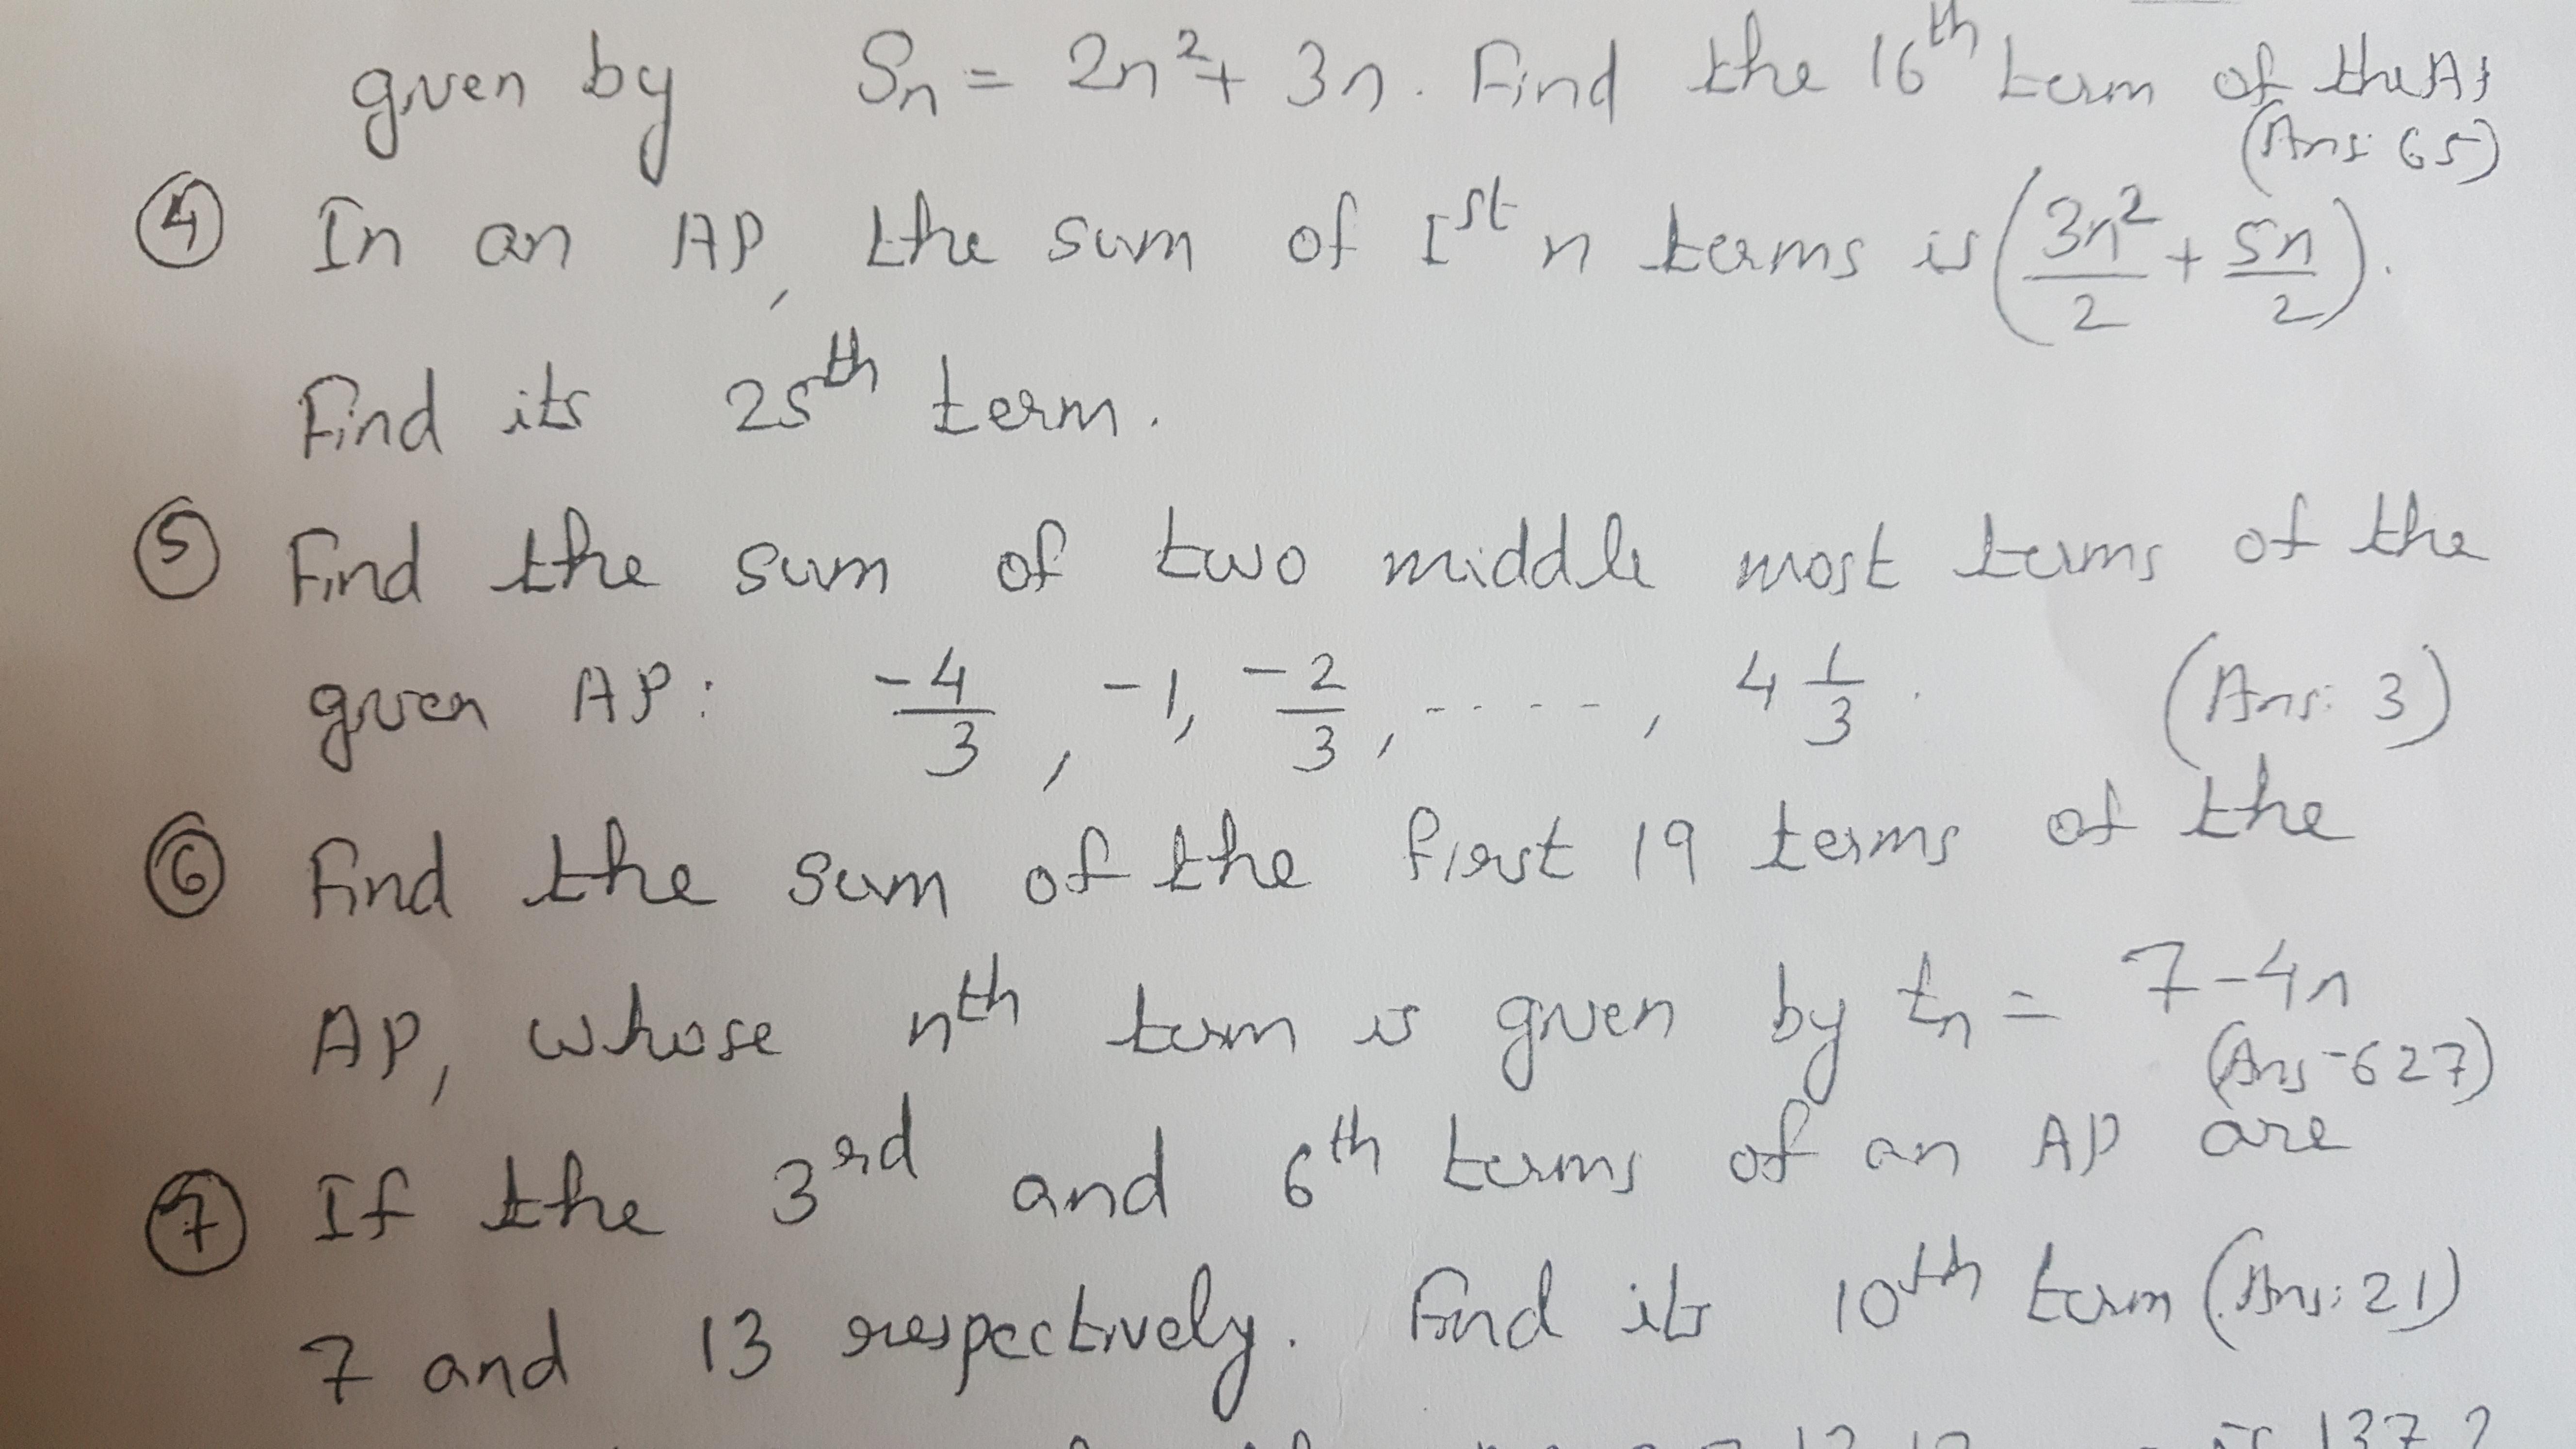 given by Sn = 2n² + 3n. Find the 16th term of the
(Ans: 65)
④ In an AP, the sum of Ist n terms is (3n²/2 + 5n/2).
Find its 25th term.
⑤ Find the sum of two middle most terms of the
given AP: -4/3, -1, -2/3, ....., 4 1/3. (Ans: 3)
⑥ Find the sum of the first 19 terms of the
AP, whose nth term is given by tn = 7-4n
(Ans -627)
⑦ If the 3rd and 6th terms of an AP are
7 and 13 respectively. Find its 10th term (Ans: 21)
is 137?